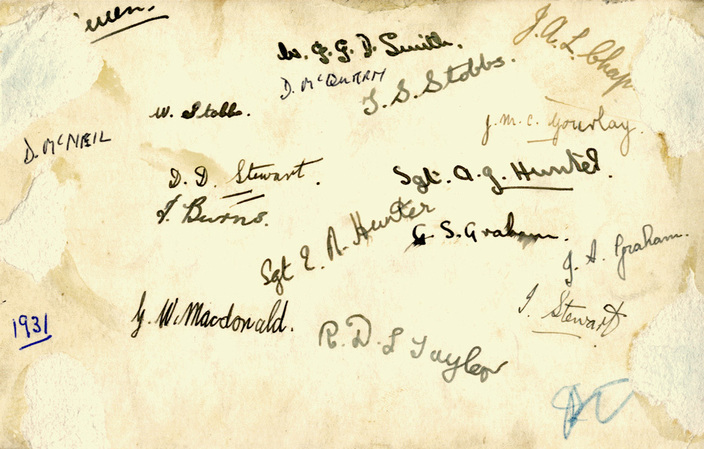 W. G. G. D. Smith.
J. A. L. Chap
D. McQUEEN
T. S. Stobbs.
W. Stobbs.
J. M. C. Gourlay.
D. McNEIL
D. D. Stewart.
Sgt. A. G. Hunter.
J. Burns.
Sgt E. R. Hunter
G. S. Graham.
J. A. Graham.
G. W. Macdonald.
J. Stewart
1931
R. D. L Taylor